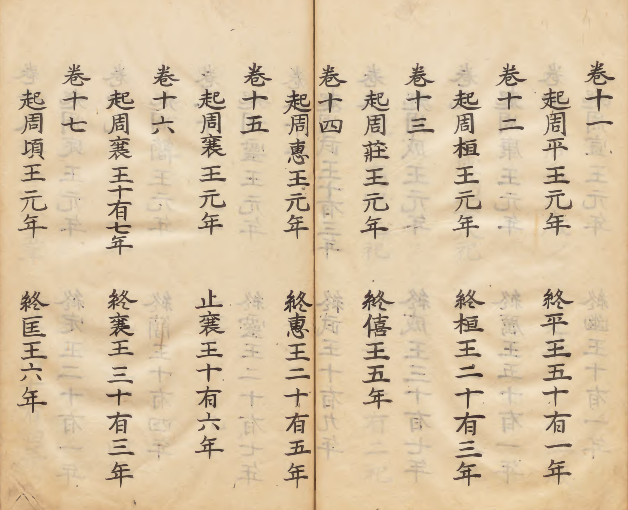 卷十一
起周平王元年　終平王五十有一年
卷十二
起周桓王元年　終桓王二十有三年
卷十三
起周莊王元年　終僖王五年
卷十四
起周惠王元年　終惠王二十有五年
卷十五
起周襄王元年　止襄王十有六年
卷十六
起周襄王十有七年　終襄王三十有三年
卷十七
起周頃王元年　終匡王六年